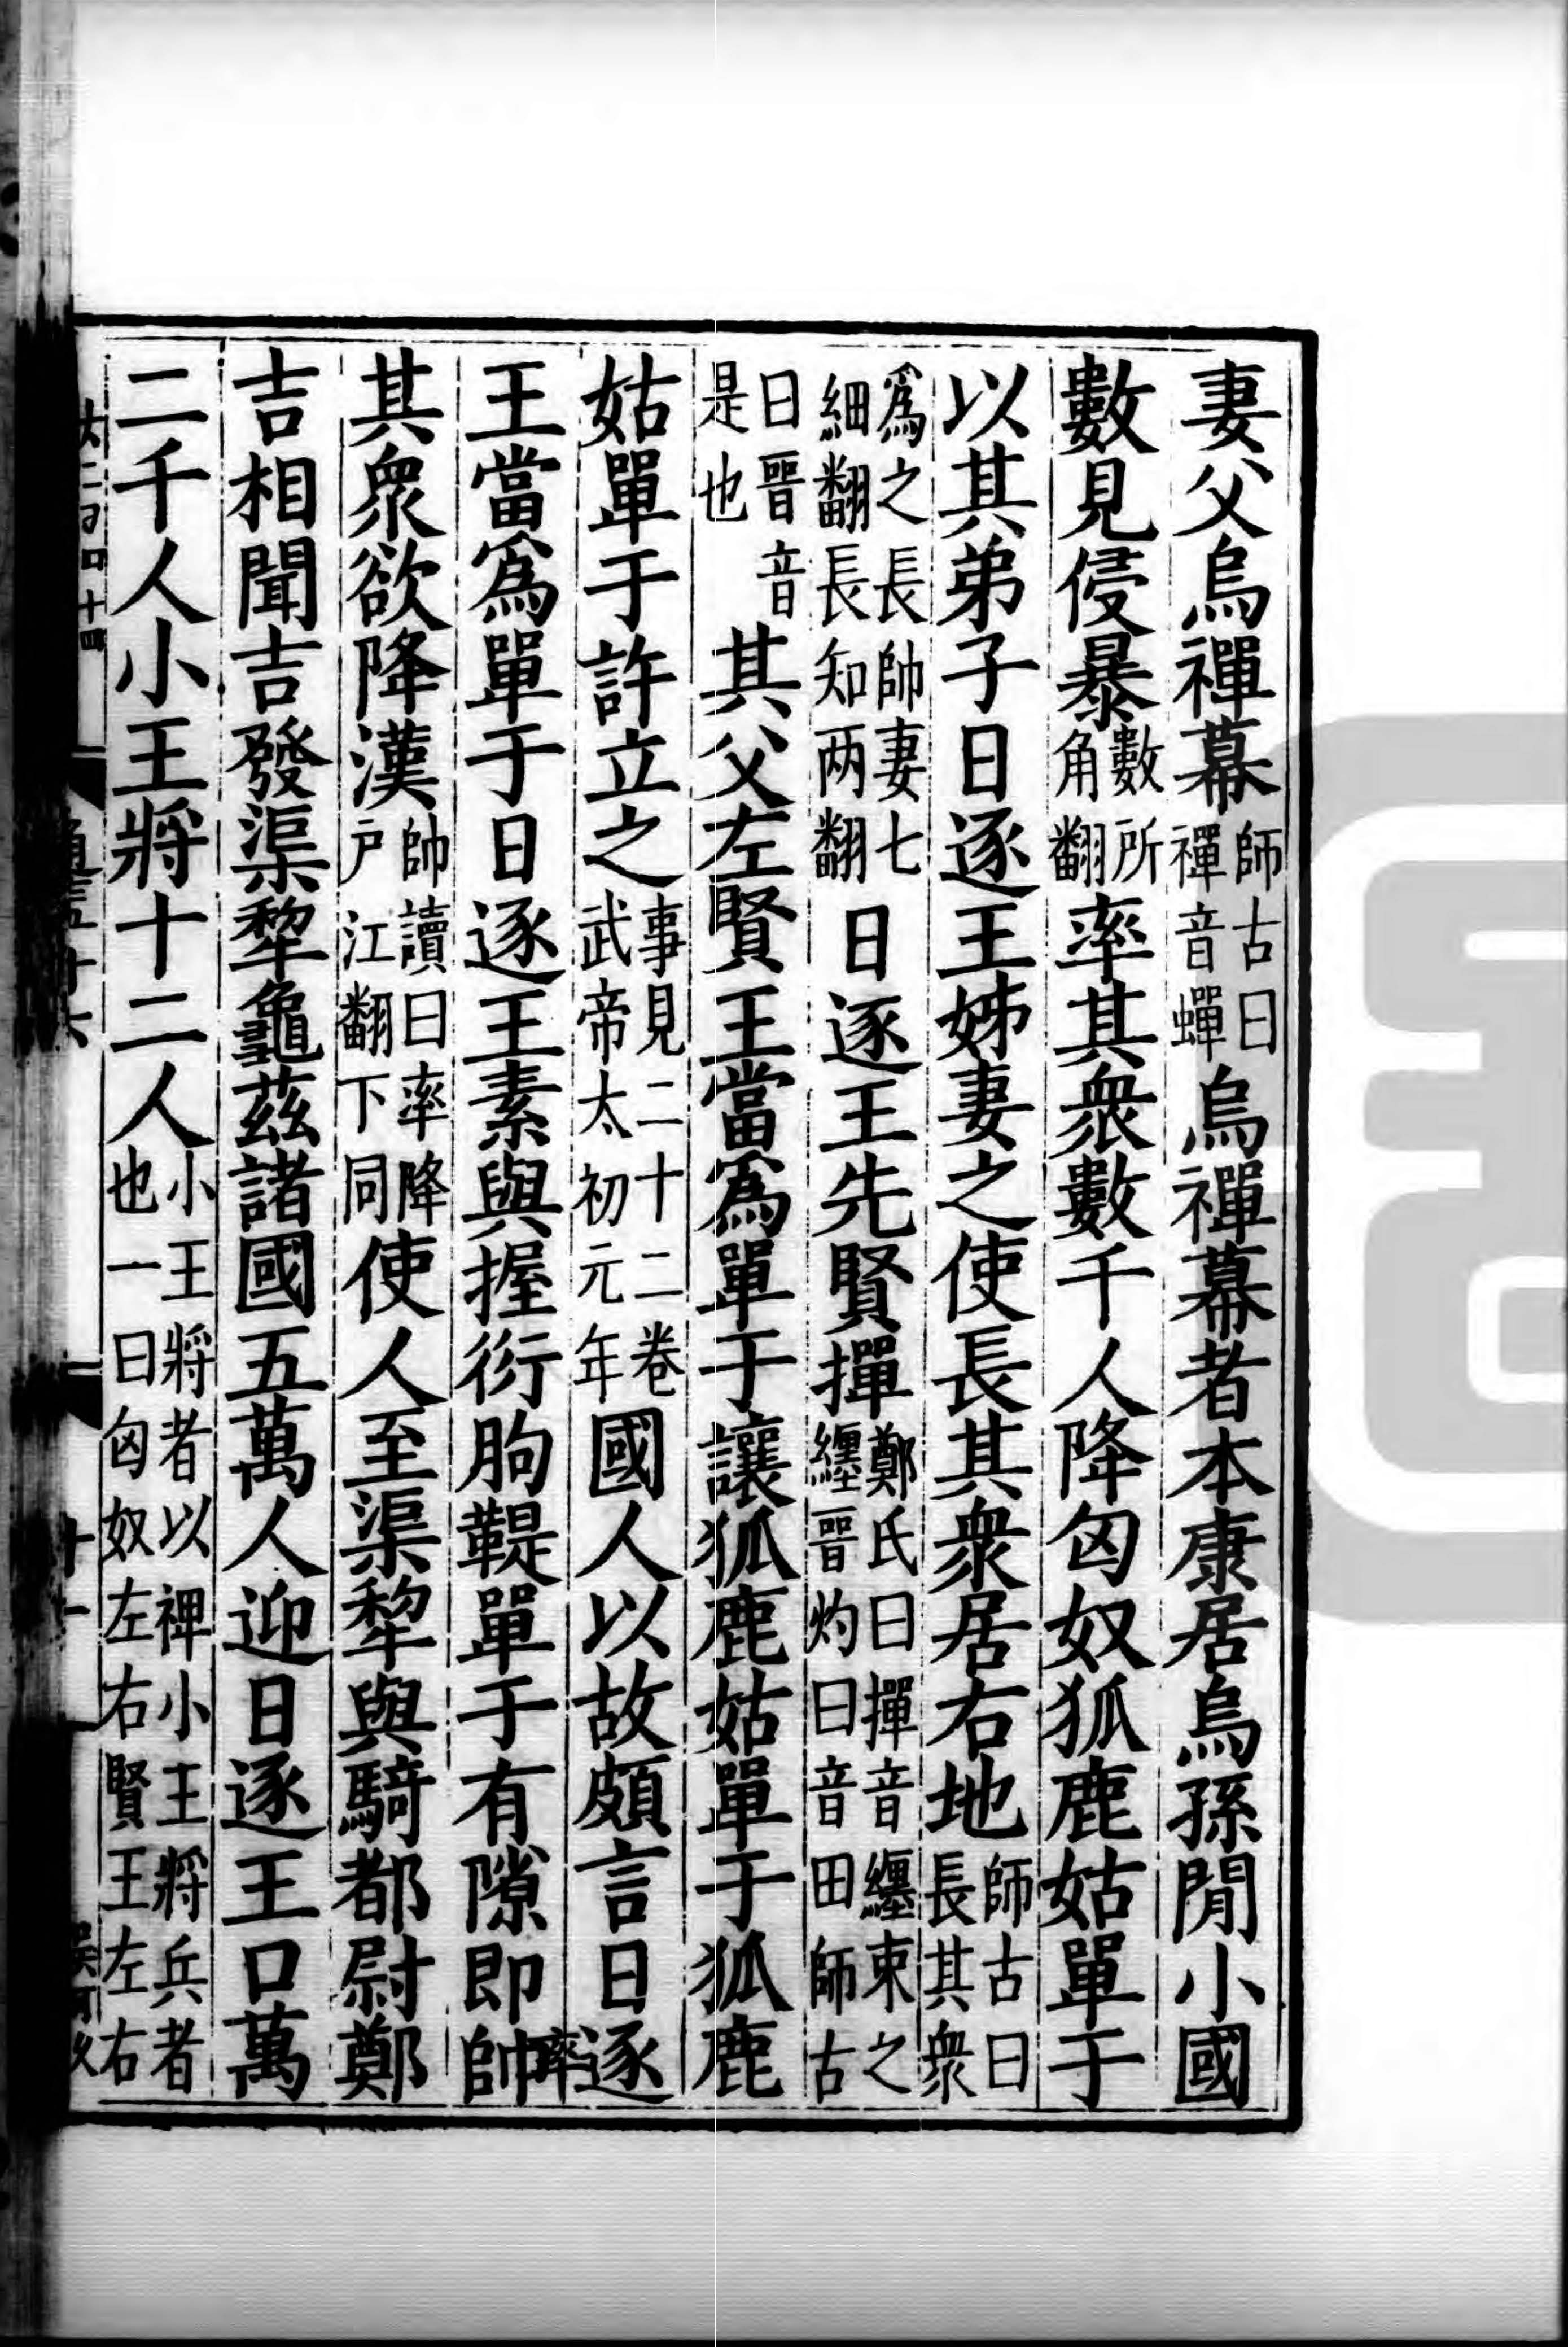 妻父烏禪幕師古曰禪音蟬烏禪幕者本康居烏孫閒小國
數見侵暴數所角翻率其衆數千人降匈奴狐鹿姑單于
以其弟子日逐王姊妻之使長其衆居右地師古曰長其衆
爲之長帥妻七細翻長知两翻日逐王先賢撣鄭氏曰撣音纏束之纏晉灼曰音田師古
曰晉音是也其父左賢王當爲單于讓狐鹿姑單于狐鹿
姑單于許立之事見二十二卷武帝太初元年國人以故頗言日逐
王當爲單于日逐王素與握衍朐鞮單于有隙即帥率
其衆欲降漢帥讀曰率降户江翻下同使人至渠犂與騎都尉鄭
吉相聞吉發渠犂龜茲諸國五萬人迎日逐王口萬
二千人小王將十二人小王將者以裨小王將兵者也一曰匈奴左右賢王左右